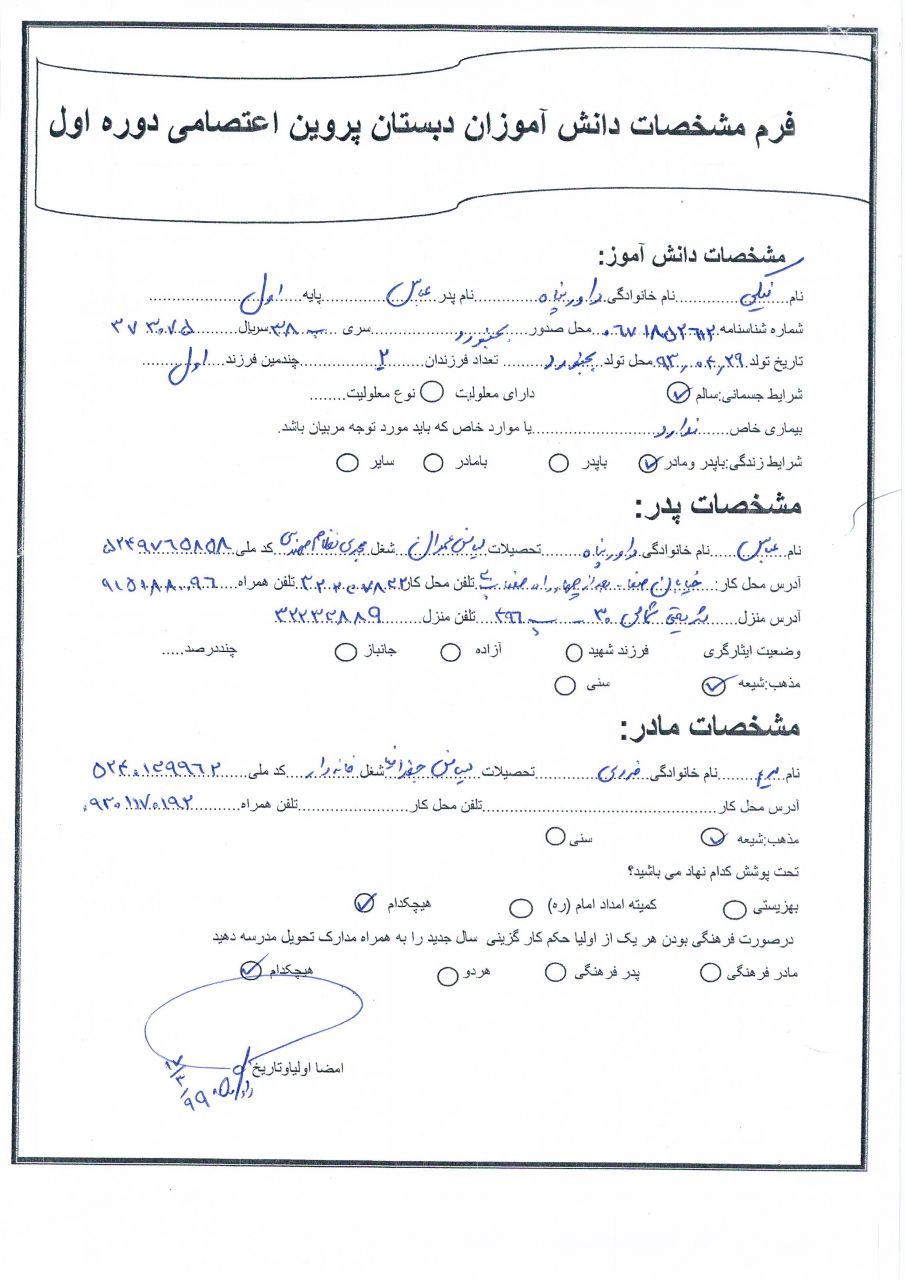 فرم مشخصات دانش آموزان دبستان پروین اعتصامی دوره اول
مشخصات دانش آموز:
نام نیکی نام خانوادگی داورپناه نام پدر عباس پایه اول
شماره شناسنامه محل صدور بجنورد سری ب ۳۸ سریال ۳۷۳۰۷۵
تاریخ تولد ۹۳,۰۴,۲۹ محل تولد بجنورد تعداد فرزندان ۲ چندمین فرزند اول
شرایط جسمانی:سالم دارای معلولیت نوع معلولیت........
بیماری خاص ندارد یا موارد خاص که باید مورد توجه مربیان باشد.
شرایط زندگی:باپدر ومادر باپدر بامادر سایر
مشخصات پدر:
نام عباس نام خانوادگی داورپناه تحصیلات لیسانس عمران شغل مجری نظام مهندسی کد ملی ۵۲۴۹۷۶۵۸۵۸
آدرس محل کار: خیابان صفا بعد از چهارراه تلفن محل کار تلفن همراه
آدرس منزل شریعتی شمالی ۳۰ پ ۳۹۶ تلفن منزل ۳۲۲۳۲۸۸۹
وضعیت ایثارگری فرزند شهید آزاده جانباز چنددرصد.....
مذهب:شیعه سنی
مشخصات مادر:
نام مریم نام خانوادگی تحصیلات لیسانس جغرافیا شغل خانه دار کد ملی ۵۲۴۰۱۳۹۹۶۲
آدرس محل کار تلفن محل کار تلفن همراه ۰۹۳۰۱۱۷۰۱۹۲
مذهب:شیعه سنی
تحت پوشش کدام نهاد می باشید؟
بهزیستی کمیته امداد امام (ره) هیچکدام
درصورت فرهنگی بودن هر یک از اولیا حکم کار گزینی سال جدید را به همراه مدارک تحویل مدرسه دهید
مادر فرهنگی پدر فرهنگی هردو هیچکدام
امضا اولیاوتاریخ
داورپناه